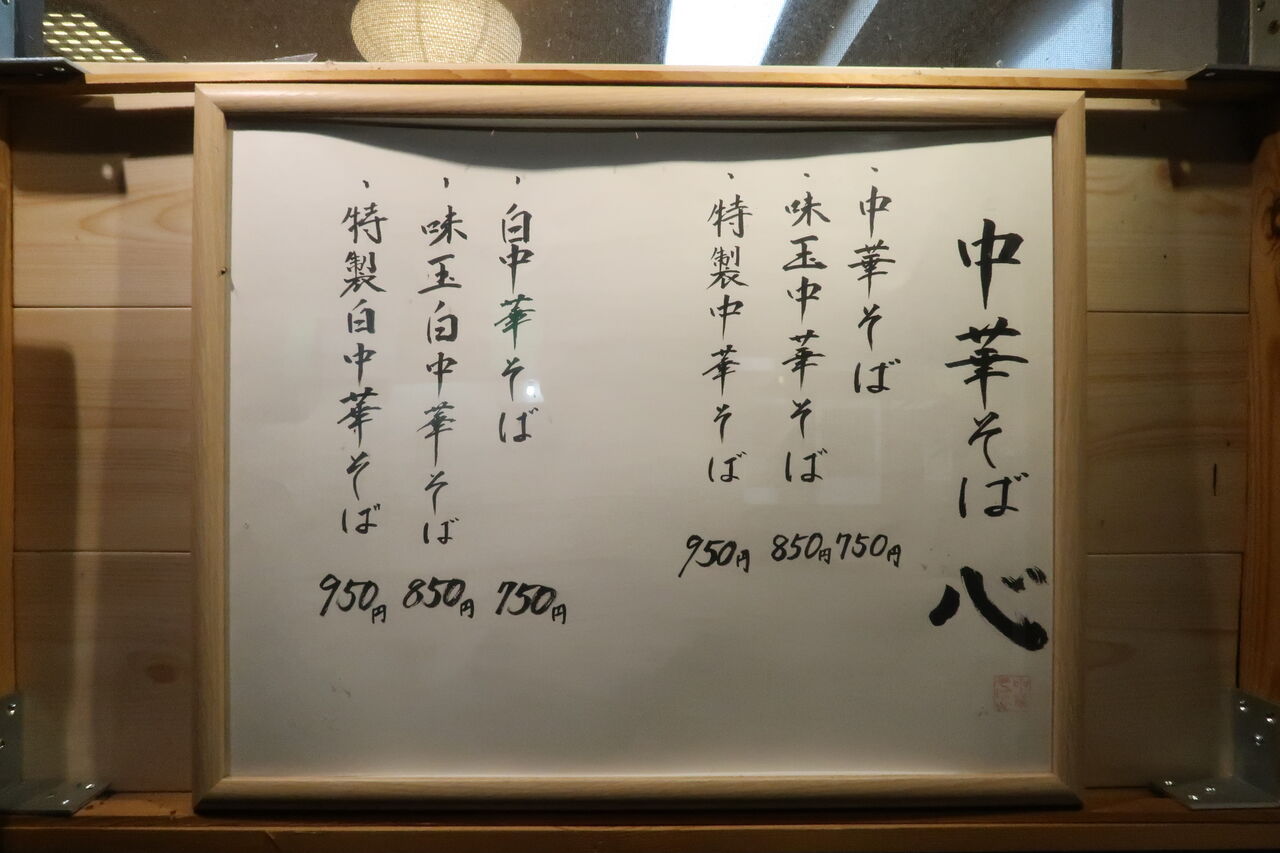 中華そば 心
、中華そば 750円
、味玉中華そば 850円
、特製中華そば 950円
、白中華そば 750円
、味玉白中華そば 850円
、特製白中華そば 950円